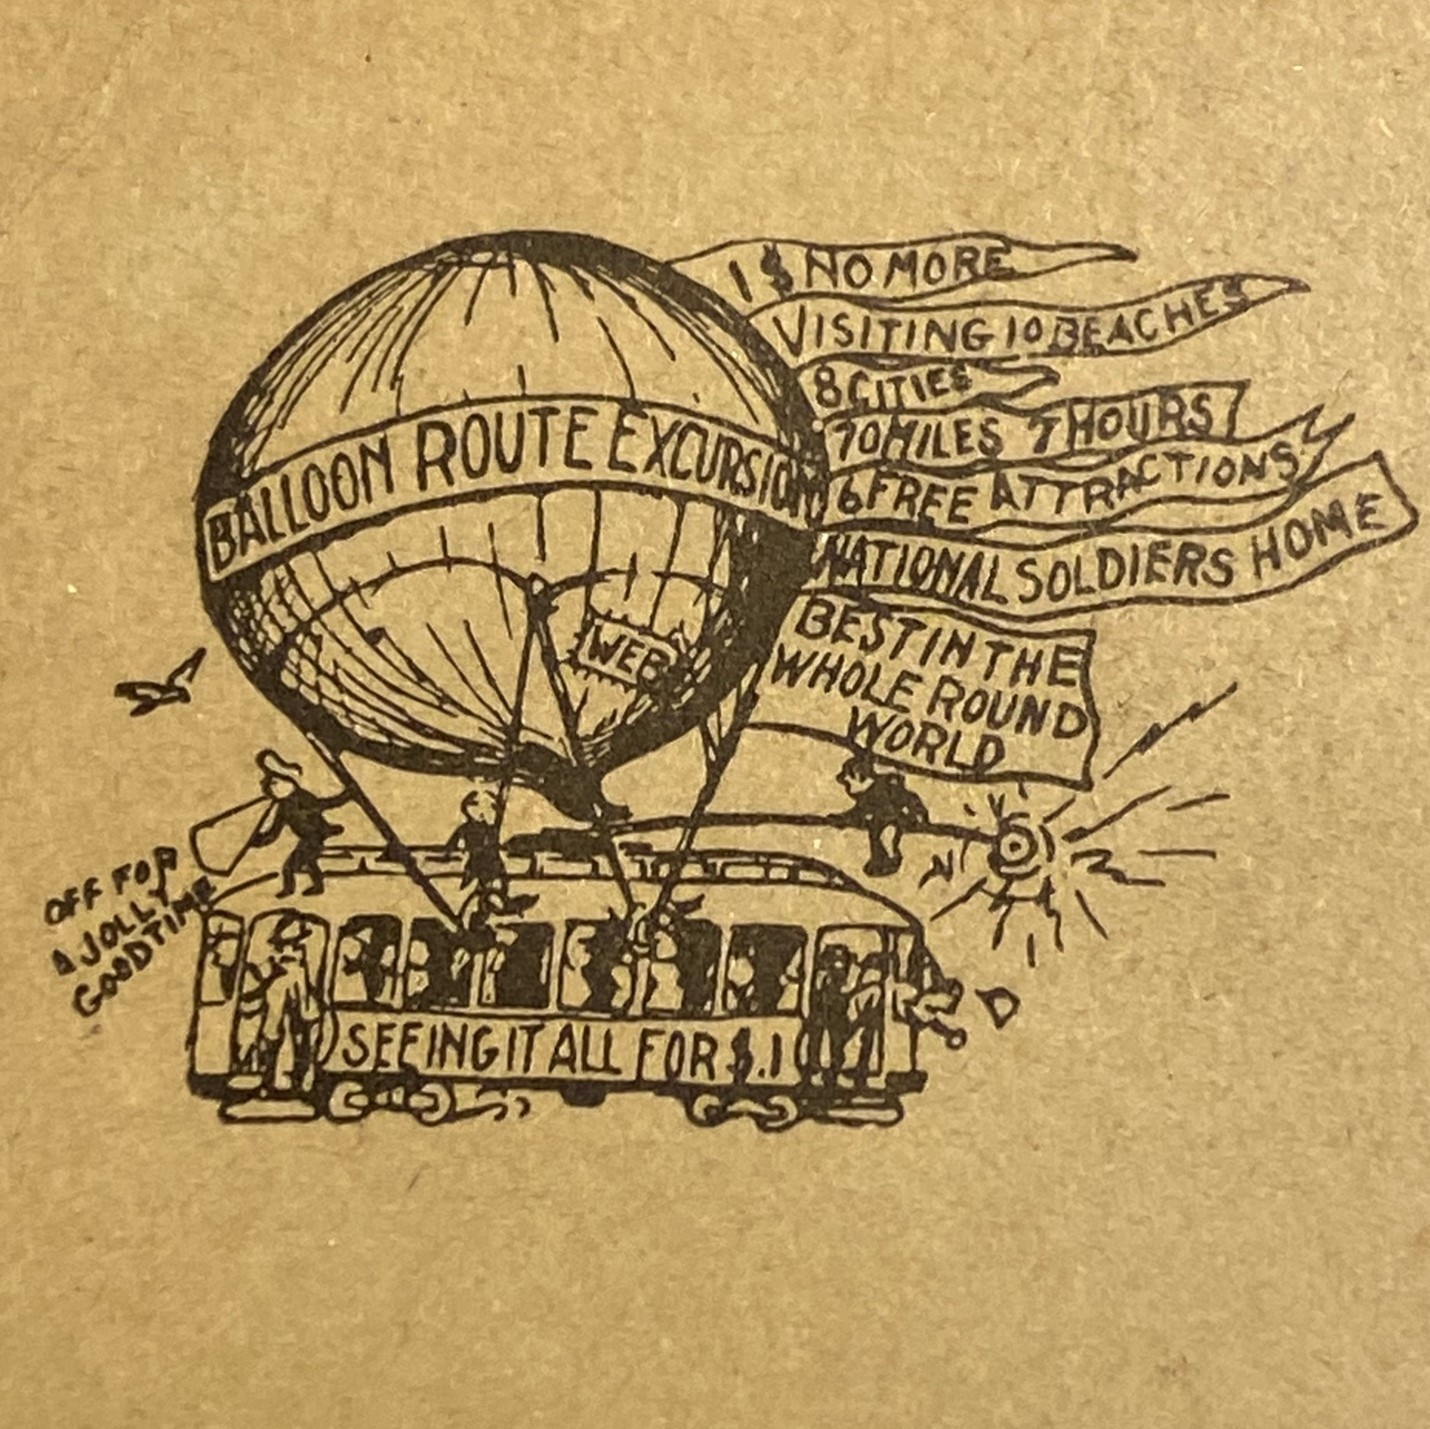 1 $ NO MORE
VISITING 10 BEACHES
8 CITIES
70 MILES 7 HOURS
6 FREE ATTRACTIONS
NATIONAL SOLDIERS HOME
BEST IN THE
WHOLE ROUND
WORLD
BALLOON ROUTE EXCURSION
WEB
OFF FOR
A JOLLY
GOOD TIME
SEEING IT ALL FOR $.1